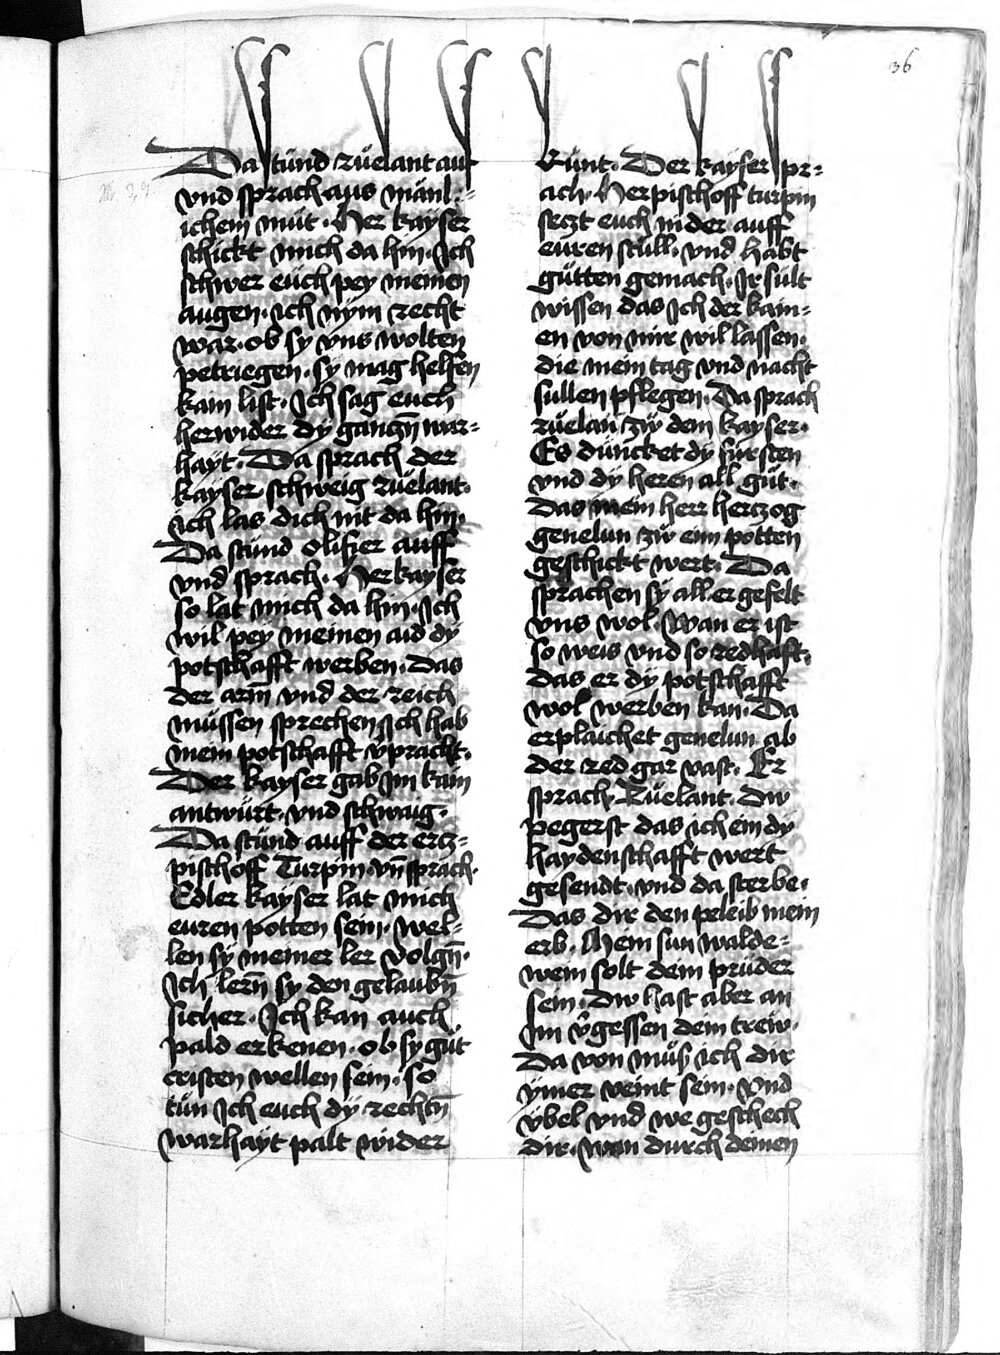 36
Da stünd rüelant auf
vnd sprach aus mänl-
ichem müt. Her kayser
schickt mich da hin. Ich
schwer euch pey meinen
augen. ich nym recht
war. ob sy vns wolten
petriegen. sy mag helfen
kain list. Ich sag euch
herwider dy ganczn̄ war-
hayt. Da sprach der
kayser schweig rüelant.
ich las dich nit da hin.
Da stünd olifier auff
vnd sprach. Her kayser
so lat mich da hin. Ich
wil pey meinen aid dy
potschafft werben. Das
der arm vnd der reich
müssen sprechen ich hab
mein potschafft v̄pracht.
Der kayser gab Im kain
antwürt. vnd schwaig.
Da stünd auff der ercz-
pischoff Turpin. vn̄ sprach.
Edler kayser lat mich
euren potten sein. wel-
len sy meiner ler volgn̄.
Ich lern̄ sy den gelaubn̄
sicher. Ich kan auch
pald erkenen. ob sy güt
cristen wellen sein. so
tün Ich euch dy rechtn̄
warhayt palt wider
künt. Der kayser spr-
ach. Her pischoff turpin
seczt euch nider auff
euren stull. vnd habt
gütten gemach. Ir sült
wissen das Ich der kain-
en von mir wil lassen.
die mein tag vnd nacht
sullen pflegen. Da sprach
rüelan zw dem kayser.
Es düncket dy fürsten
vnd dy heren all güt.
Das mein herr herczog
genelun zw eim potten
geschickt wert. Da
sprachen sy all. er gefelt
vns wol. Wan er ist
so weis vnd so redhaft.
das er dy potschafft
wol werben kan. Da
erplaichet genelun ab
der red gar vast. Er
sprach. Rüelant. Dw
pegerst das ich ein dy
haydenschafft wert
gesendt. vnd da sterbe.
Das dir den peleib mein
erb. Mein sun walde-
wein solt dem prüder
sein. Dw hast aber an
Im v̄gessen dein treiw.
Da von müs ich dir
ymer veint sein. Vnd
vbel vnd we geschech
dir. wan durch deinen